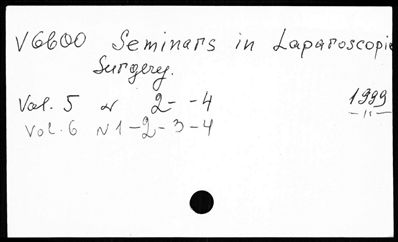 V6600 Seminars in Laparoscopic
Surgery.
Vol. 5 N 2- -4 1999
Vol. 6 N1-2-3-4 -"-